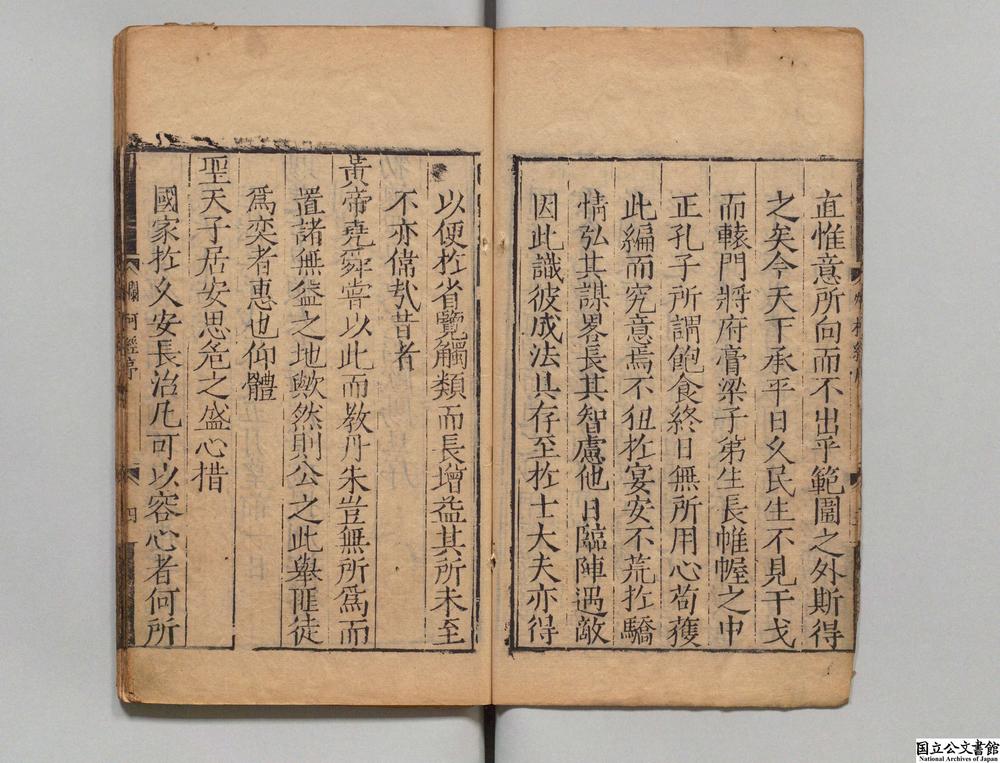 直惟意所向而不出乎範圍之外斯得
之矣今天下承平日久民生不見干戈
而轅門將府膏梁子弟生長帷幄之中
正孔子所謂飽食終日無所用心苟獲
此編而究意焉不狃於宴安不荒於驕
情弘其謀畧長其智慮他日臨陣遇敵
因此識彼成法具存至於士大夫亦得
以便於省覽觸類而長增益其所未至
不亦偉哉昔者
黃帝堯舜嘗以此而教丹朱豈無所爲而
置諸無益之地歟然則公之此舉匪徒
爲奕者惠也仰體
聖天子居安思危之盛心措
國家於久安長治凡可以容心者何所
爛柯經序
四
国立公文書館
National Archives of Japan